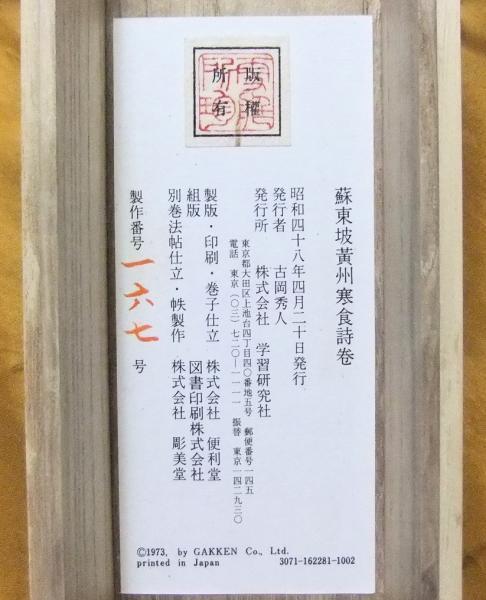 版權
所有
蘇東坡黃州寒食詩卷
昭和四十八年四月二十日発行
発行者 古岡秀人
発行所 株式会社 学習研究社
東京都大田区上池台四丁目四〇番地五号 郵便番号一四五
電話 東京(〇三)七二〇―一一一一 振替 東京一四二九三〇
製版・印刷・巻子仕立 株式会社 便利堂
組版 図書印刷株式会社
別巻法帖仕立・帙製作 株式会社 彫美堂
製作番号 一六七 号
©1973, by GAKKEN Co., Ltd.
printed in Japan 3071-162281-1002